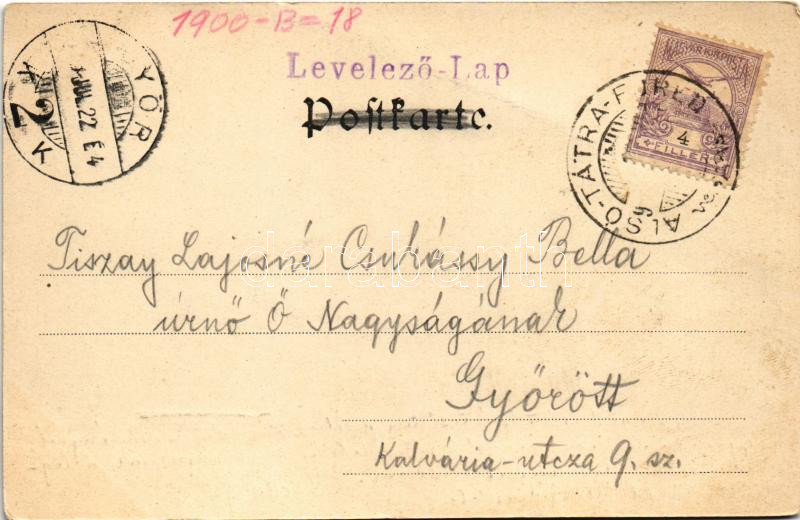 1900-B=18
Levelező-Lap
Postkarte.
MAGYAR KIR. POSTA
4 FILLER
ALSÓ-TÁTRA-FÜRED
4
GYŐR
22 E 4
2
K K
darabanth
Tiszay Lajosné Csukássy Bella
úrnő Ő Nagyságának
Győrött
Kalvária-utcza 9. sz.